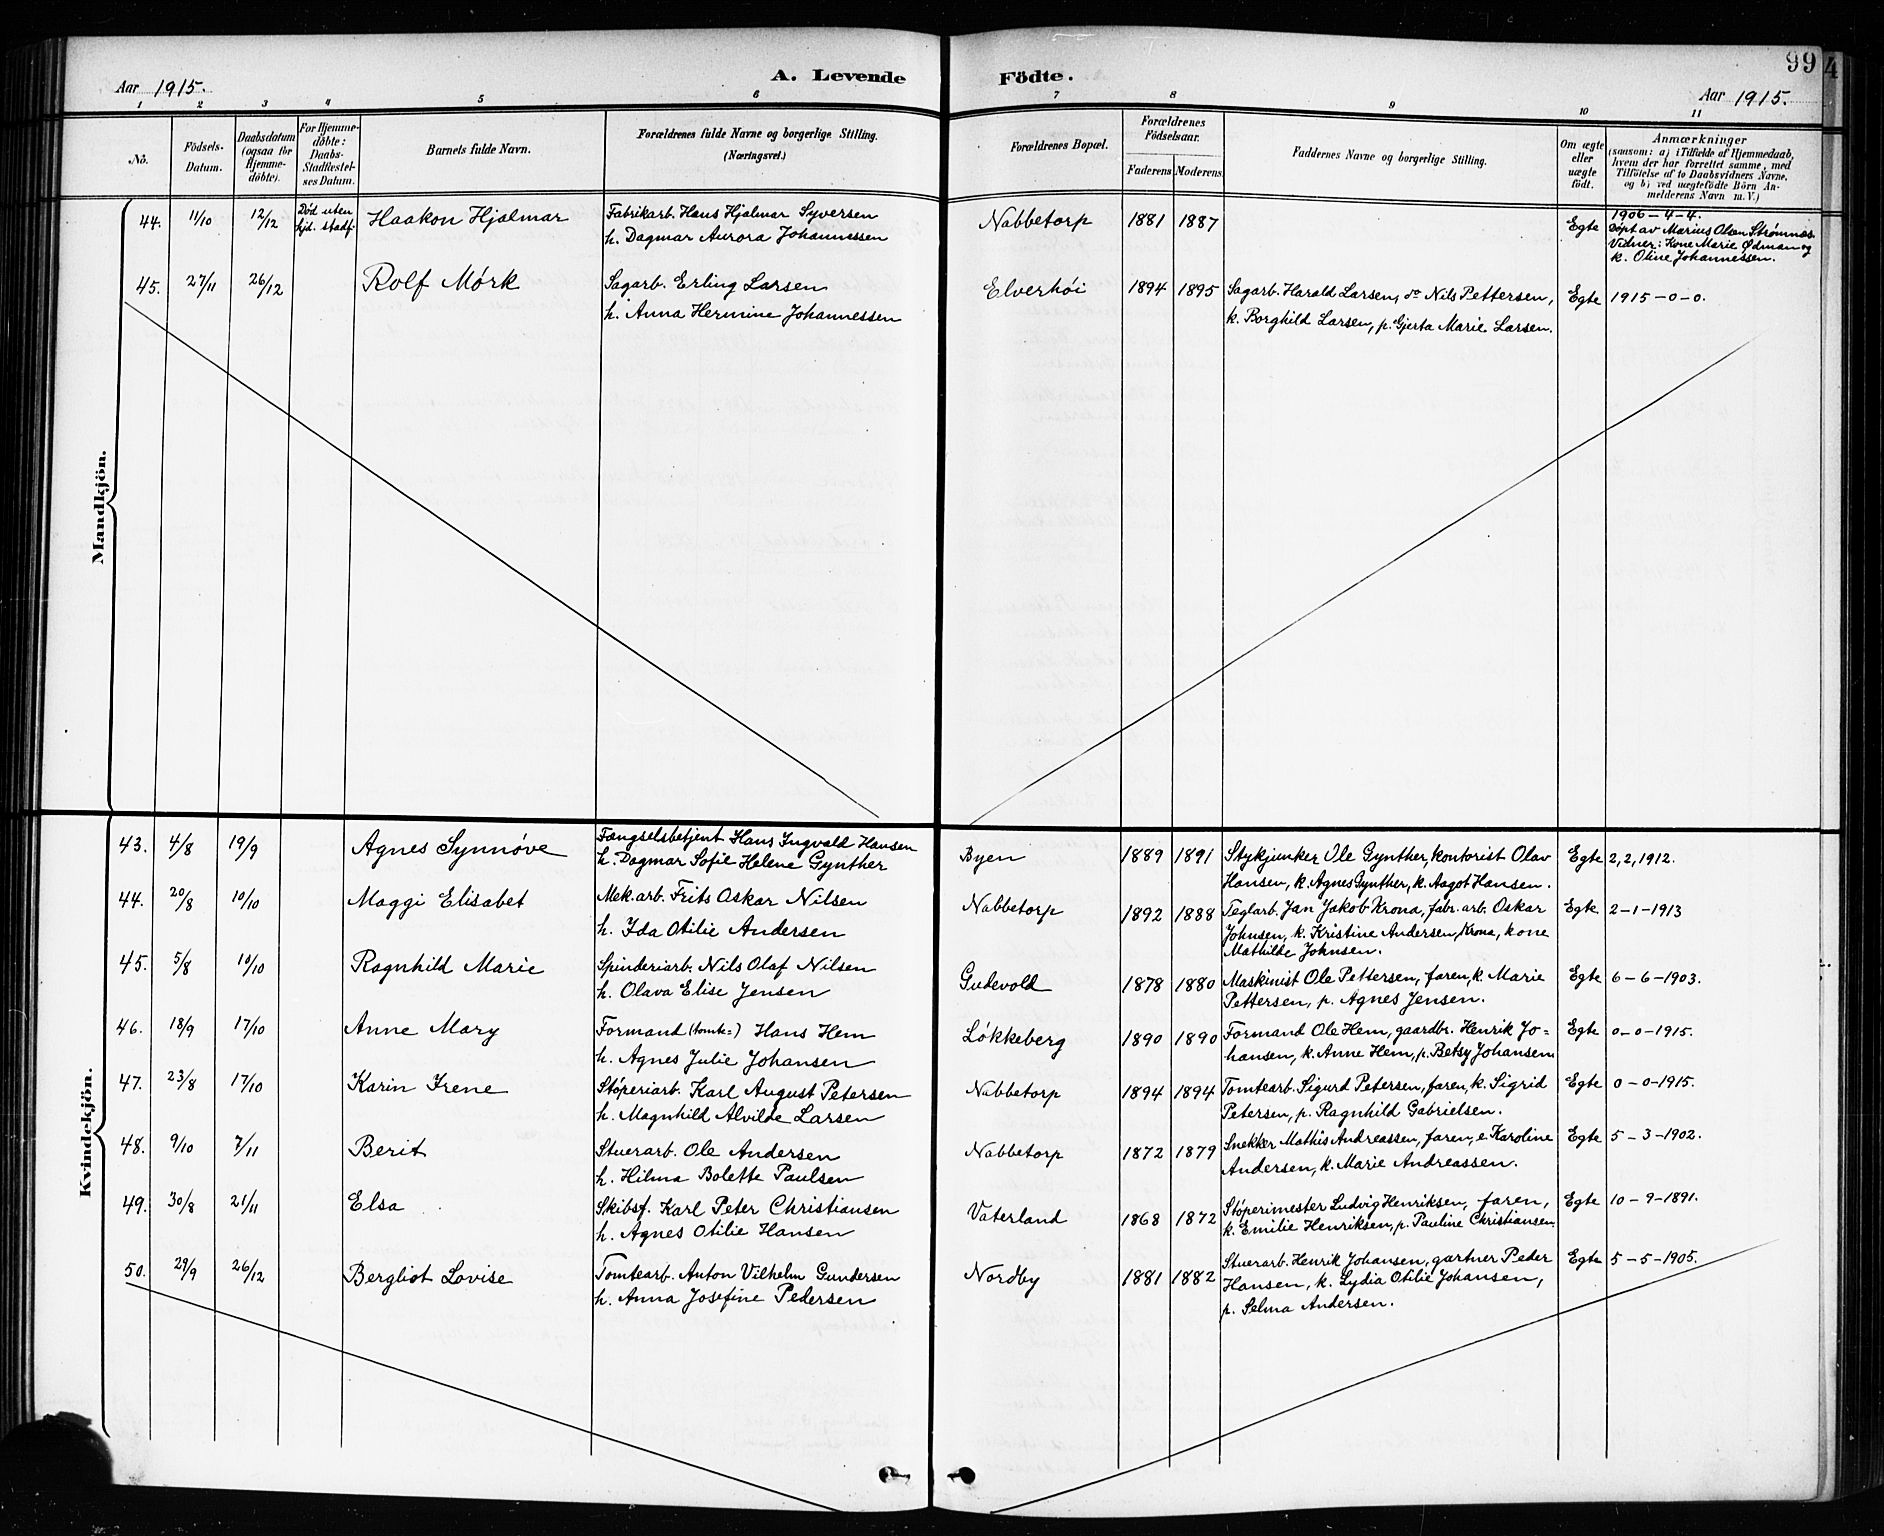 99
4
Aar 1915.
A. Levende
Födte.
Aar 1915.
1 2 3 4 5 6 7 8 9 10 11
No.
Födsels-
Datum.
Daabsdatum
(ogsaa for
Hjemme-
döbte).
For Hjemme-
döbte:
Daabs-
Stadfæstel-
ses Datum.
Barnets fulde Navn.
Forældrenes fulde Navne og borgerlige Stilling.
(Næringsvei.)
Forældrenes Bopæl.
Forældrenes
Födselsaar.
Faderens Moderens
Faddernes Navne og borgerlige Stilling.
Om ægte
eller
uægte
födt.
Anmærkninger
(saasom: a) i Tilfælde af Hjemmedaab,
hvem der har forrettet samme, med
Tilföielse af to Daabsvidners Navne,
og b) ved uægtefödte Börn An-
melderens Navn m. V.)
Mandkjön.
44. 11/10 12/12
Död uten
hjd. stadf.
Haakon Hjalmar
Fabrikarb. Hans Hjalmar Syversen
h. Dagmar Aurora Johannessen
Nabbetorp 1881 1887
Egte
1906 - 4 - 4.
Döpt av Marius Olsen Strømnæs.
Vidner: Kone Marie Ødman og
k. Oline Johannessen.
45. 27/11 26/12
Rolf Mörk
Sagarb. Erling Larsen
h. Anna Hermine Johannessen
Elverhöi 1894 1895
Sagarb. Harald Larsen, do Nils Pettersen,
k. Borghild Larsen, p. Gjerta Marie Larsen.
Egte 1915 - 0 - 0.
Kvindekjön.
43. 4/8 19/9
Agnes Synnöve
Fængselsbetjent Hans Ingvald Hansen
h. Dagmar Sofie Helene Gynther
Byen 1889 1891
Stykjunker Ole Gynther, kontorist Olav
Hansen, k. Agnes Gynther, k. Aagot Hansen.
Egte 2, 2, 1912.
44. 20/8 10/10
Maggi Elisabet
Mek. arb. Frits Oskar Nilsen
h. Ida Otilie Andersen
Nabbetorp 1892 1888
Teglarb. Jan Jakob Krona, fabr. arb. Oskar
Johnsen, k. Kristine Andersen, Krona, kone
Mathilde Johnsen.
Egte 2 - 1 - 1913
45. 5/8 10/10
Ragnhild Marie
Spinderiarb. Nils Olaf Nilsen
h. Olava Elise Jensen
Gudevold 1878 1880
Maskinist Ole Pettersen, faren, k. Marie
Pettersen, p. Agnes Jensen.
Egte 6 - 6 - 1903.
46. 18/9 17/10
Anne Mary
Formand (tomte=) Hans Hem
h. Agnes Julie Johansen
Lökkeberg 1890 1890
Formand Ole Hem, gaardbr. Henrik Jo=
hansen, k. Anne Hem, p. Betsy Johansen
Egte 0 - 0 - 1915.
47. 23/8 17/10
Karin Irene
Stöperiarb. Karl August Petersen
h. Magnhild Alvilde Larsen
Nabbetorp 1894 1894
Tomtearb. Sigurd Petersen, faren, k. Sigrid
Petersen, p. Ragnhild Gabrielsen.
Egte 0 - 0 - 1915.
48. 9/10 7/11
Berit
Stuerarb. Ole Andersen
h. Hilma Bolette Paulsen
Nabbetorp 1872 1879
Snekker Mathis Andreassen, faren, e. Karoline
Andersen, k. Marie Andreassen.
Egte 5 - 3 - 1902.
49. 30/8 21/11
Elsa
Skibsf. Karl Peter Christiansen
h. Agnes Otilie Hansen
Vaterland 1868 1872
Stöperimester Ludvig Henriksen, faren,
k. Emilie Henriksen, p. Pauline Christiansen.
Egte 10 - 9 - 1891.
50. 29/9 26/12
Bergliot Lovise
Tomtearb. Anton Vilhelm Gundersen
h. Anna Josefine Pedersen
Nordby 1881 1882
Stuerarb. Henrik Johansen, gartner Peder
Hansen, k. Lydia Otilie Johansen,
p. Selma Andersen.
Egte 5 - 5 - 1905.